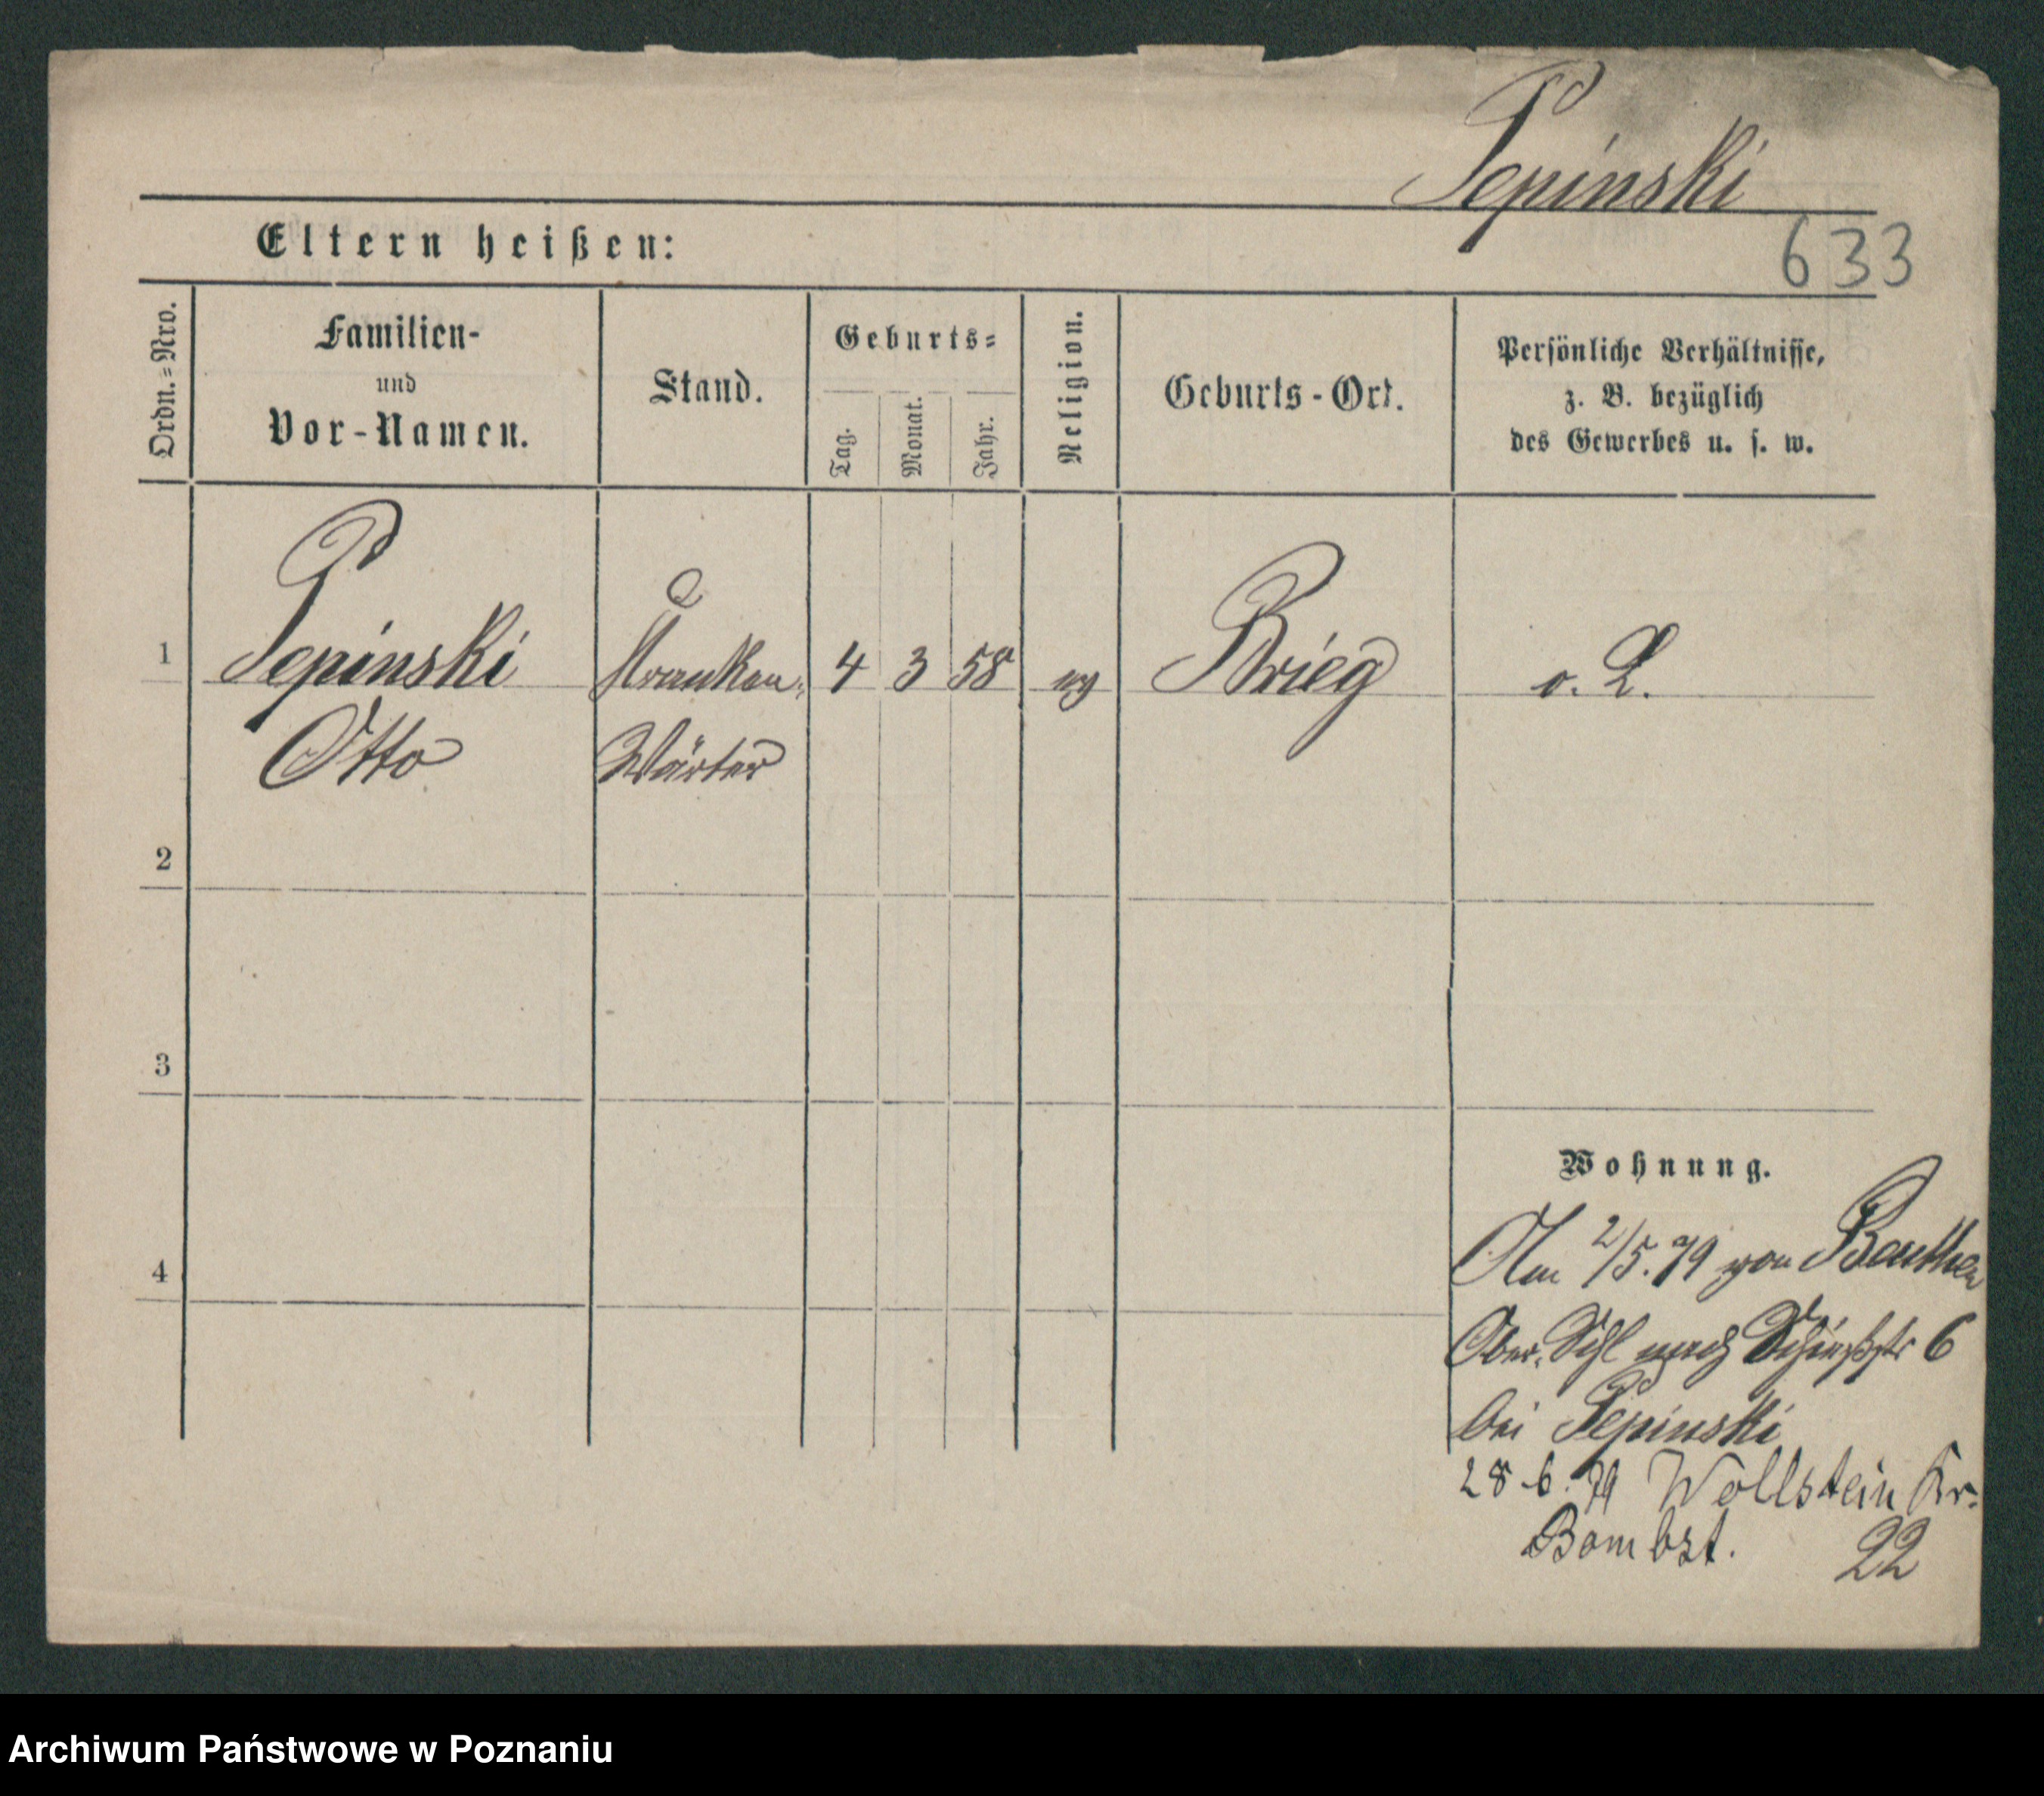 Pepinski
633
Eltern heißen:
Ordn.=Nro.
Familien-
und
Vor-Namen.
Stand.
Geburts=
Tag.
Monat.
Jahr.
Religion.
Geburts-Ort.
Persönliche Verhältnisse,
z. B. bezüglich
des Gewerbes u. s. w.
1 Pepinski Kranken= 4 3 58 ev Brieg o. L.
Otto Wärter
2
3
4
Wohnung.
Am 2/5.79 von Beuthen
Ober. Schl nach 6
bei Pepinski
28 6. 79 Wollstein Kr.
Bombst. 22
Archiwum Państwowe w Poznaniu